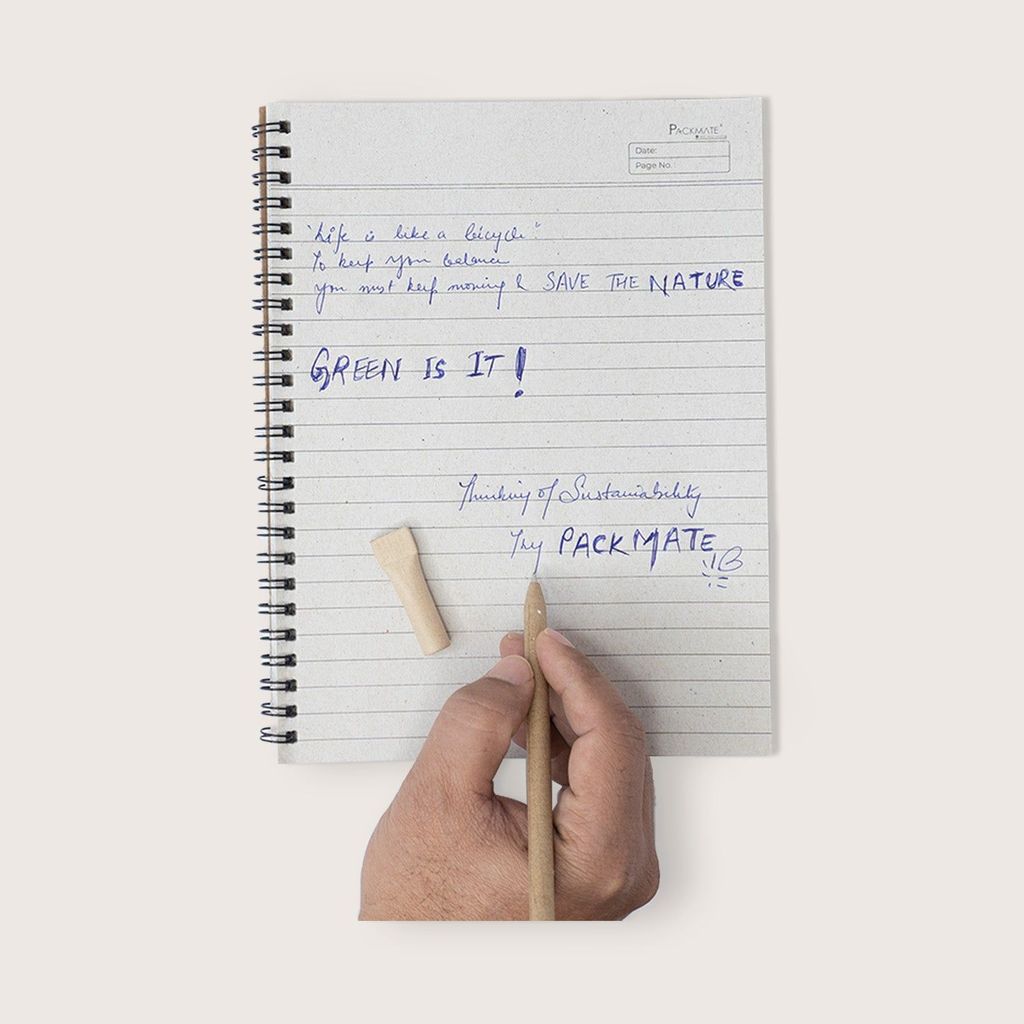 PACKMATE
Date:
Page No.
"Life is like a bicycle".
To keep your balance
you must keep moving & SAVE THE NATURE
GREEN IS IT!
Thinking of Sustainability
Try PACKMATE